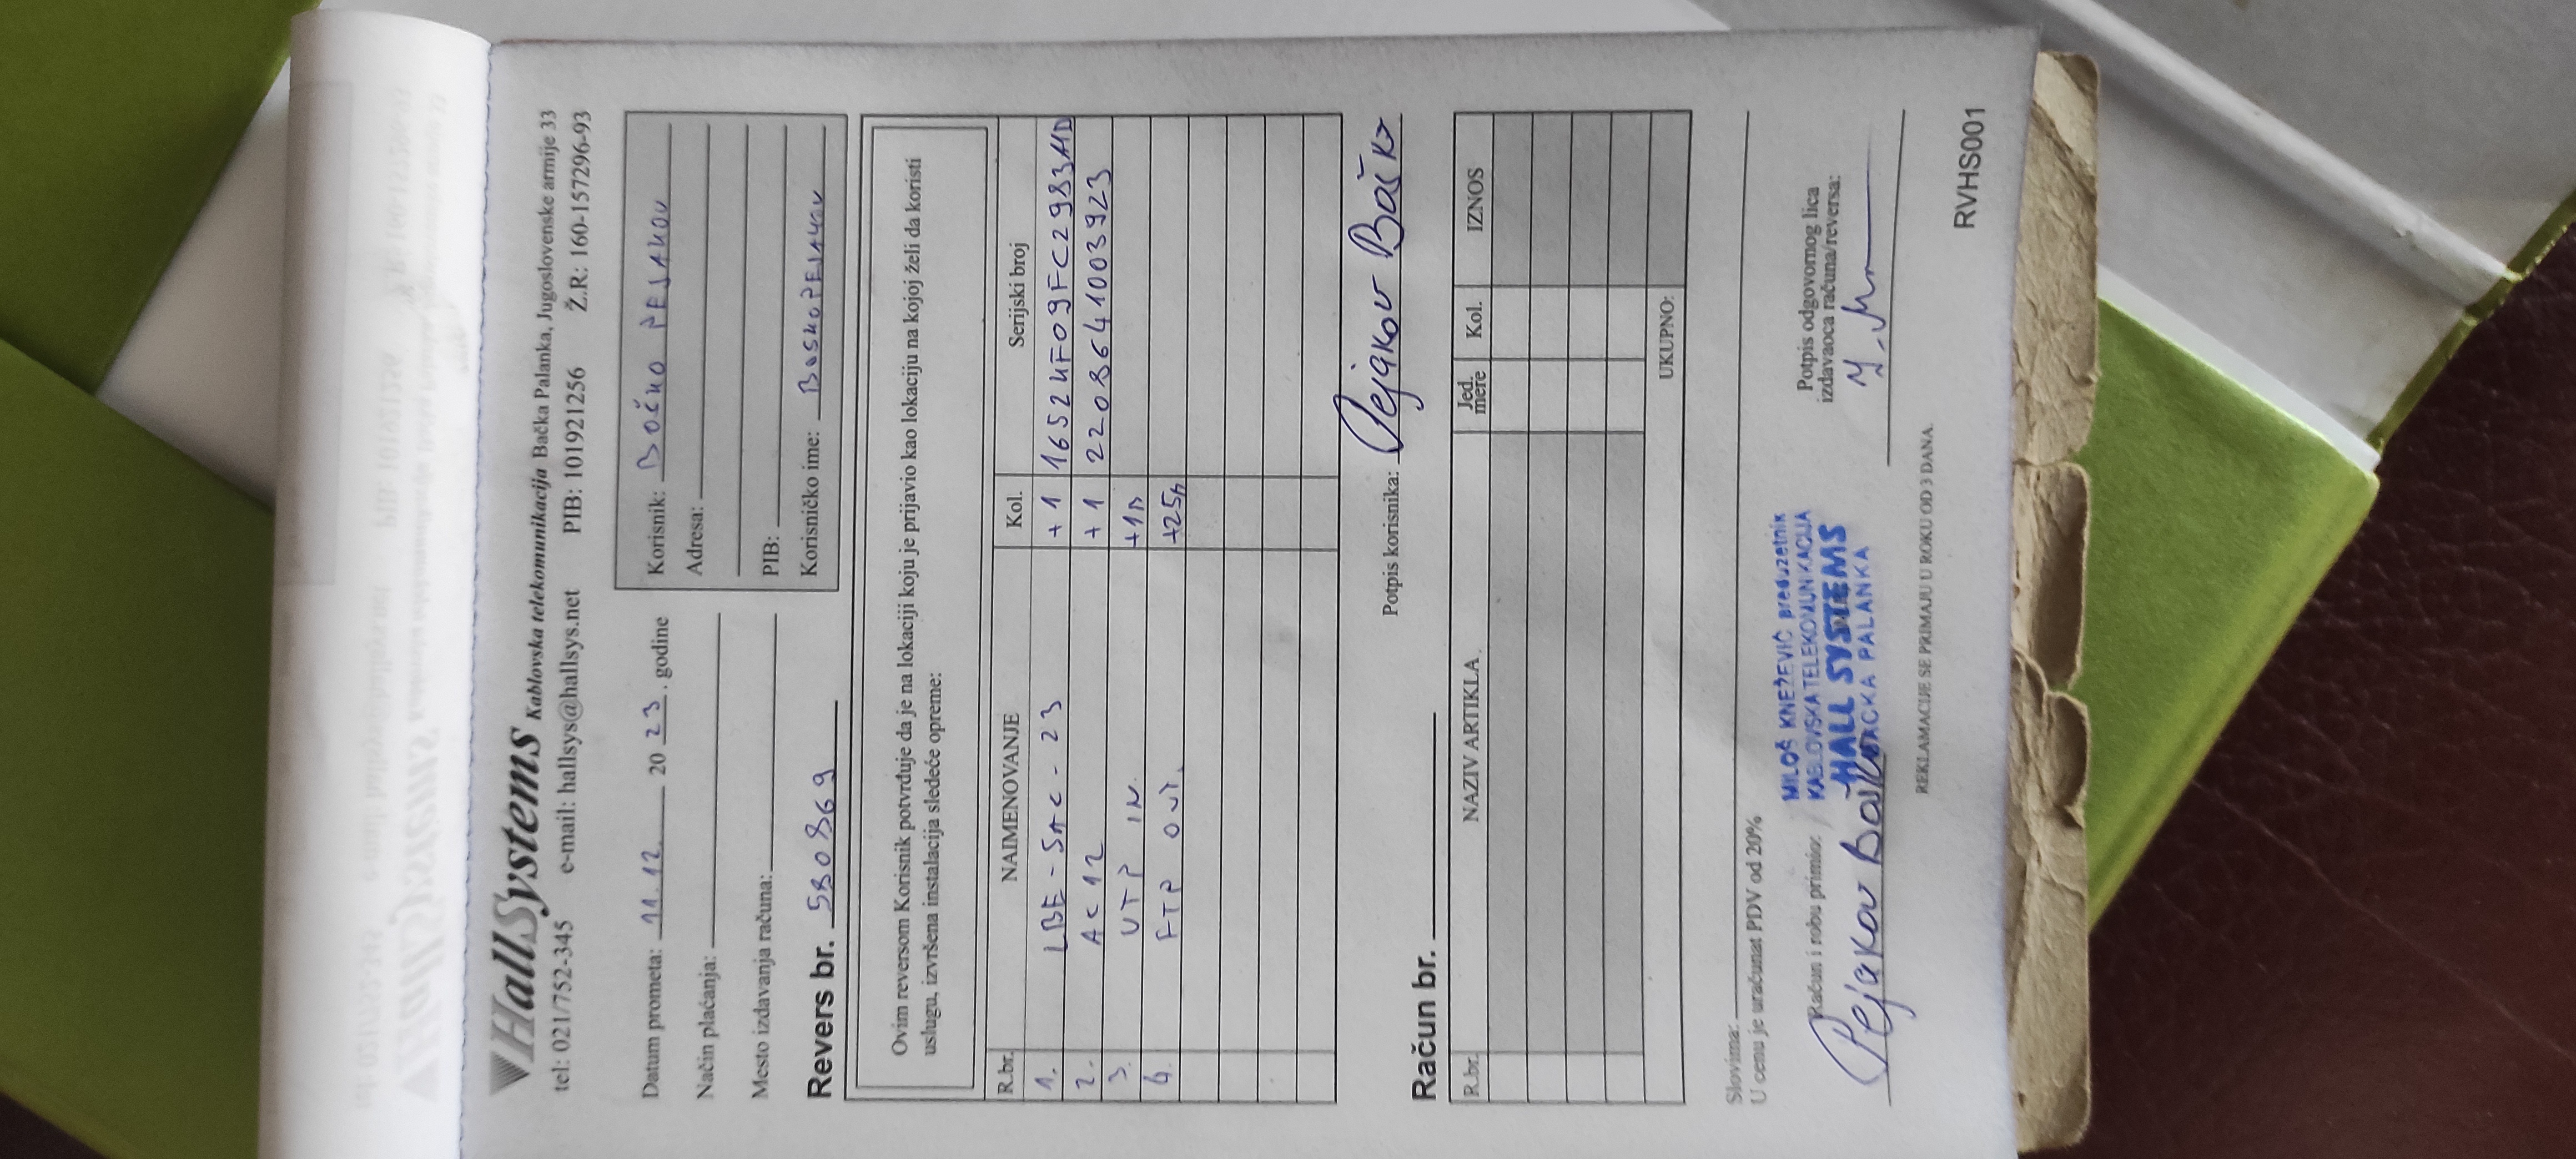 HallSystems Kablovska telekomunikacija Bačka Palanka, Jugoslovenske armije 33
tel: 021/752-345 e-mail: hallsys@hallsys.net PIB: 101921256 Ž.R: 160-157296-93
Datum prometa: 11.12. 20 23. godine
Način plaćanja:
Mesto izdavanja računa:
Korisnik: BOŠKO PEJAKOV
Adresa:
PIB:
Korisničko ime: BOSKOPEJAKOV
Revers br. 580869
Ovim reversom Korisnik potvrđuje da je na lokaciji koju je prijavio kao lokaciju na kojoj želi da koristi
uslugu, izvršena instalacija sledeće opreme:
R.br. NAIMENOVANJE Kol. Serijski broj
1. LBE-5AC-23 +1 1652KF09FC2983AHD
2. AC12 +1 2208641003923
3. UTP IN. +1m
4. FTP OUT. +25m
Potpis korisnika: Pejakov Boško
Račun br.
R.br. NAZIV ARTIKLA Jed. mere Kol. IZNOS
UKUPNO:
Slovima:
U cenu je uračunat PDV od 20%
Račun i robu primio:
Pejakov Boško
MILOŠ KNEŽEVIĆ preduzetnik
KABLOVSKA TELEKOMUNIKACIJA
HALL SYSTEMS
BACKA PALANKA
Potpis odgovornog lica
izdavaoca računa/reversa:
REKLAMACIJE SE PRIMAJU U ROKU OD 3 DANA.
RVHS001